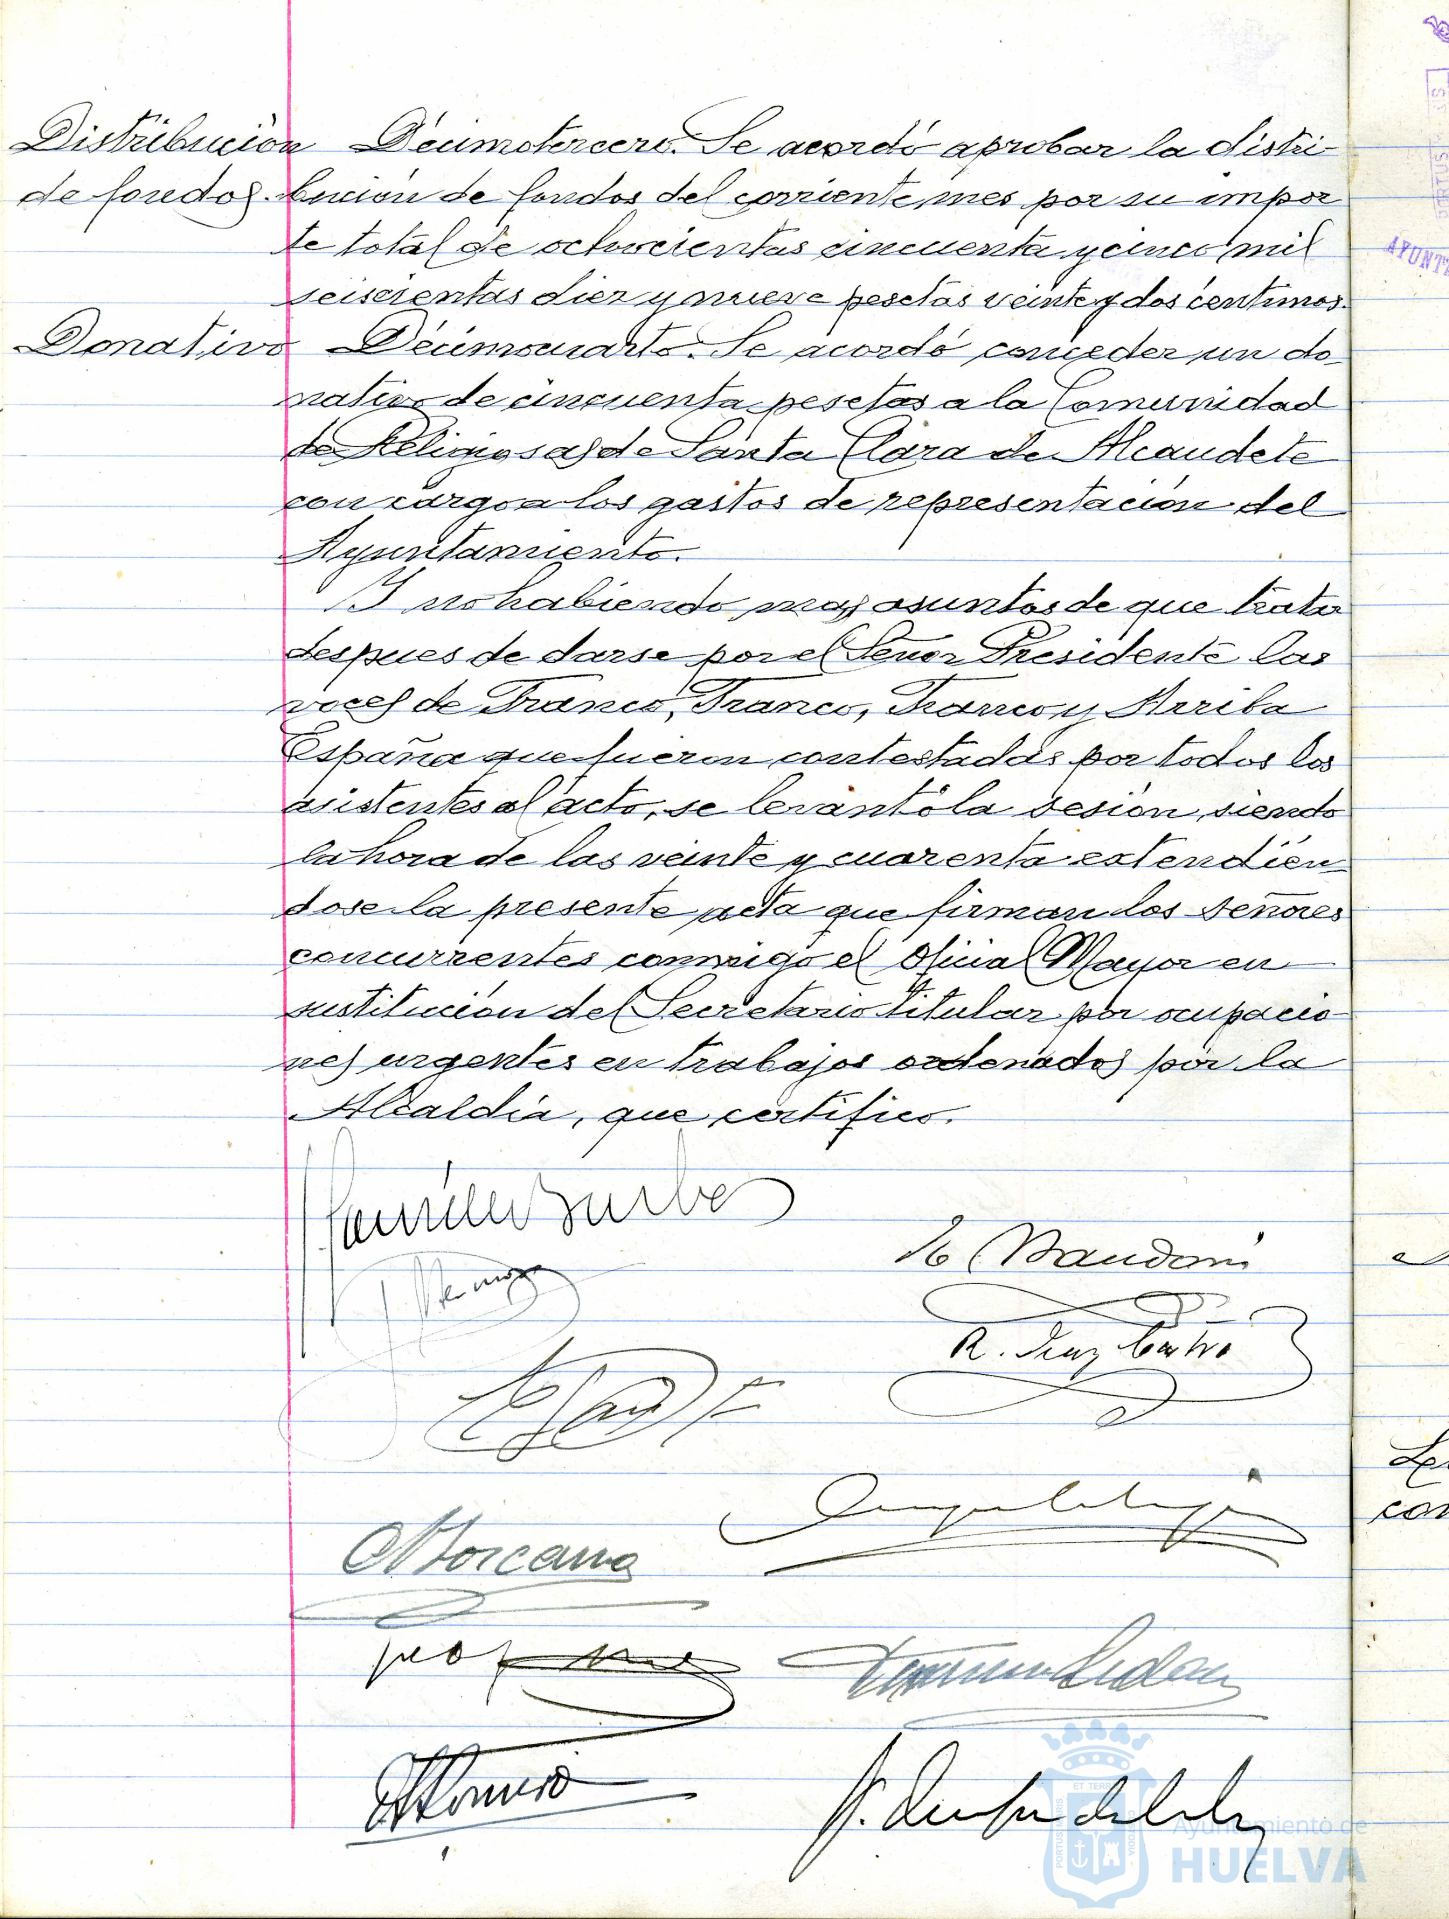 Distribución Décimotercero. Se acordó aprobar la distri-
de fondos. bución de fondos del corriente mes por su impor
te total de ochocientas cincuenta y cinco mil
seiscientas diez y nueve pesetas veinte y dos centimos.
Donativo Décimocuarto. Se acordó conceder un do-
nativo de cincuenta pesetas a la Comunidad
de Religiosas de Santa Clara de Alcaudete
con cargo a los gastos de representación del
Ayuntamiento.
Y no habiendo mas asuntos de que tratar
despues de darse por el Señor Presidente las
voces de Franco, Franco, Franco y Arriba
España que fueron contestadas por todos los
asistentes al acto, se levantó la sesión, siendo
la hora de las veinte y cuarenta extendién-
dose la presente acta que firman los señores
concurrentes conmigo el Oficial Mayor en
sustitución del Secretario titular por ocupacio-
nes urgentes en trabajos ordenados por la
Alcaldía, que certifico.
R. Díaz Castro
Romero
AYUNT
PORTUS MARIS
ET TERRAE
CUSTODIA
Ayuntamiento de
HUELVA
con